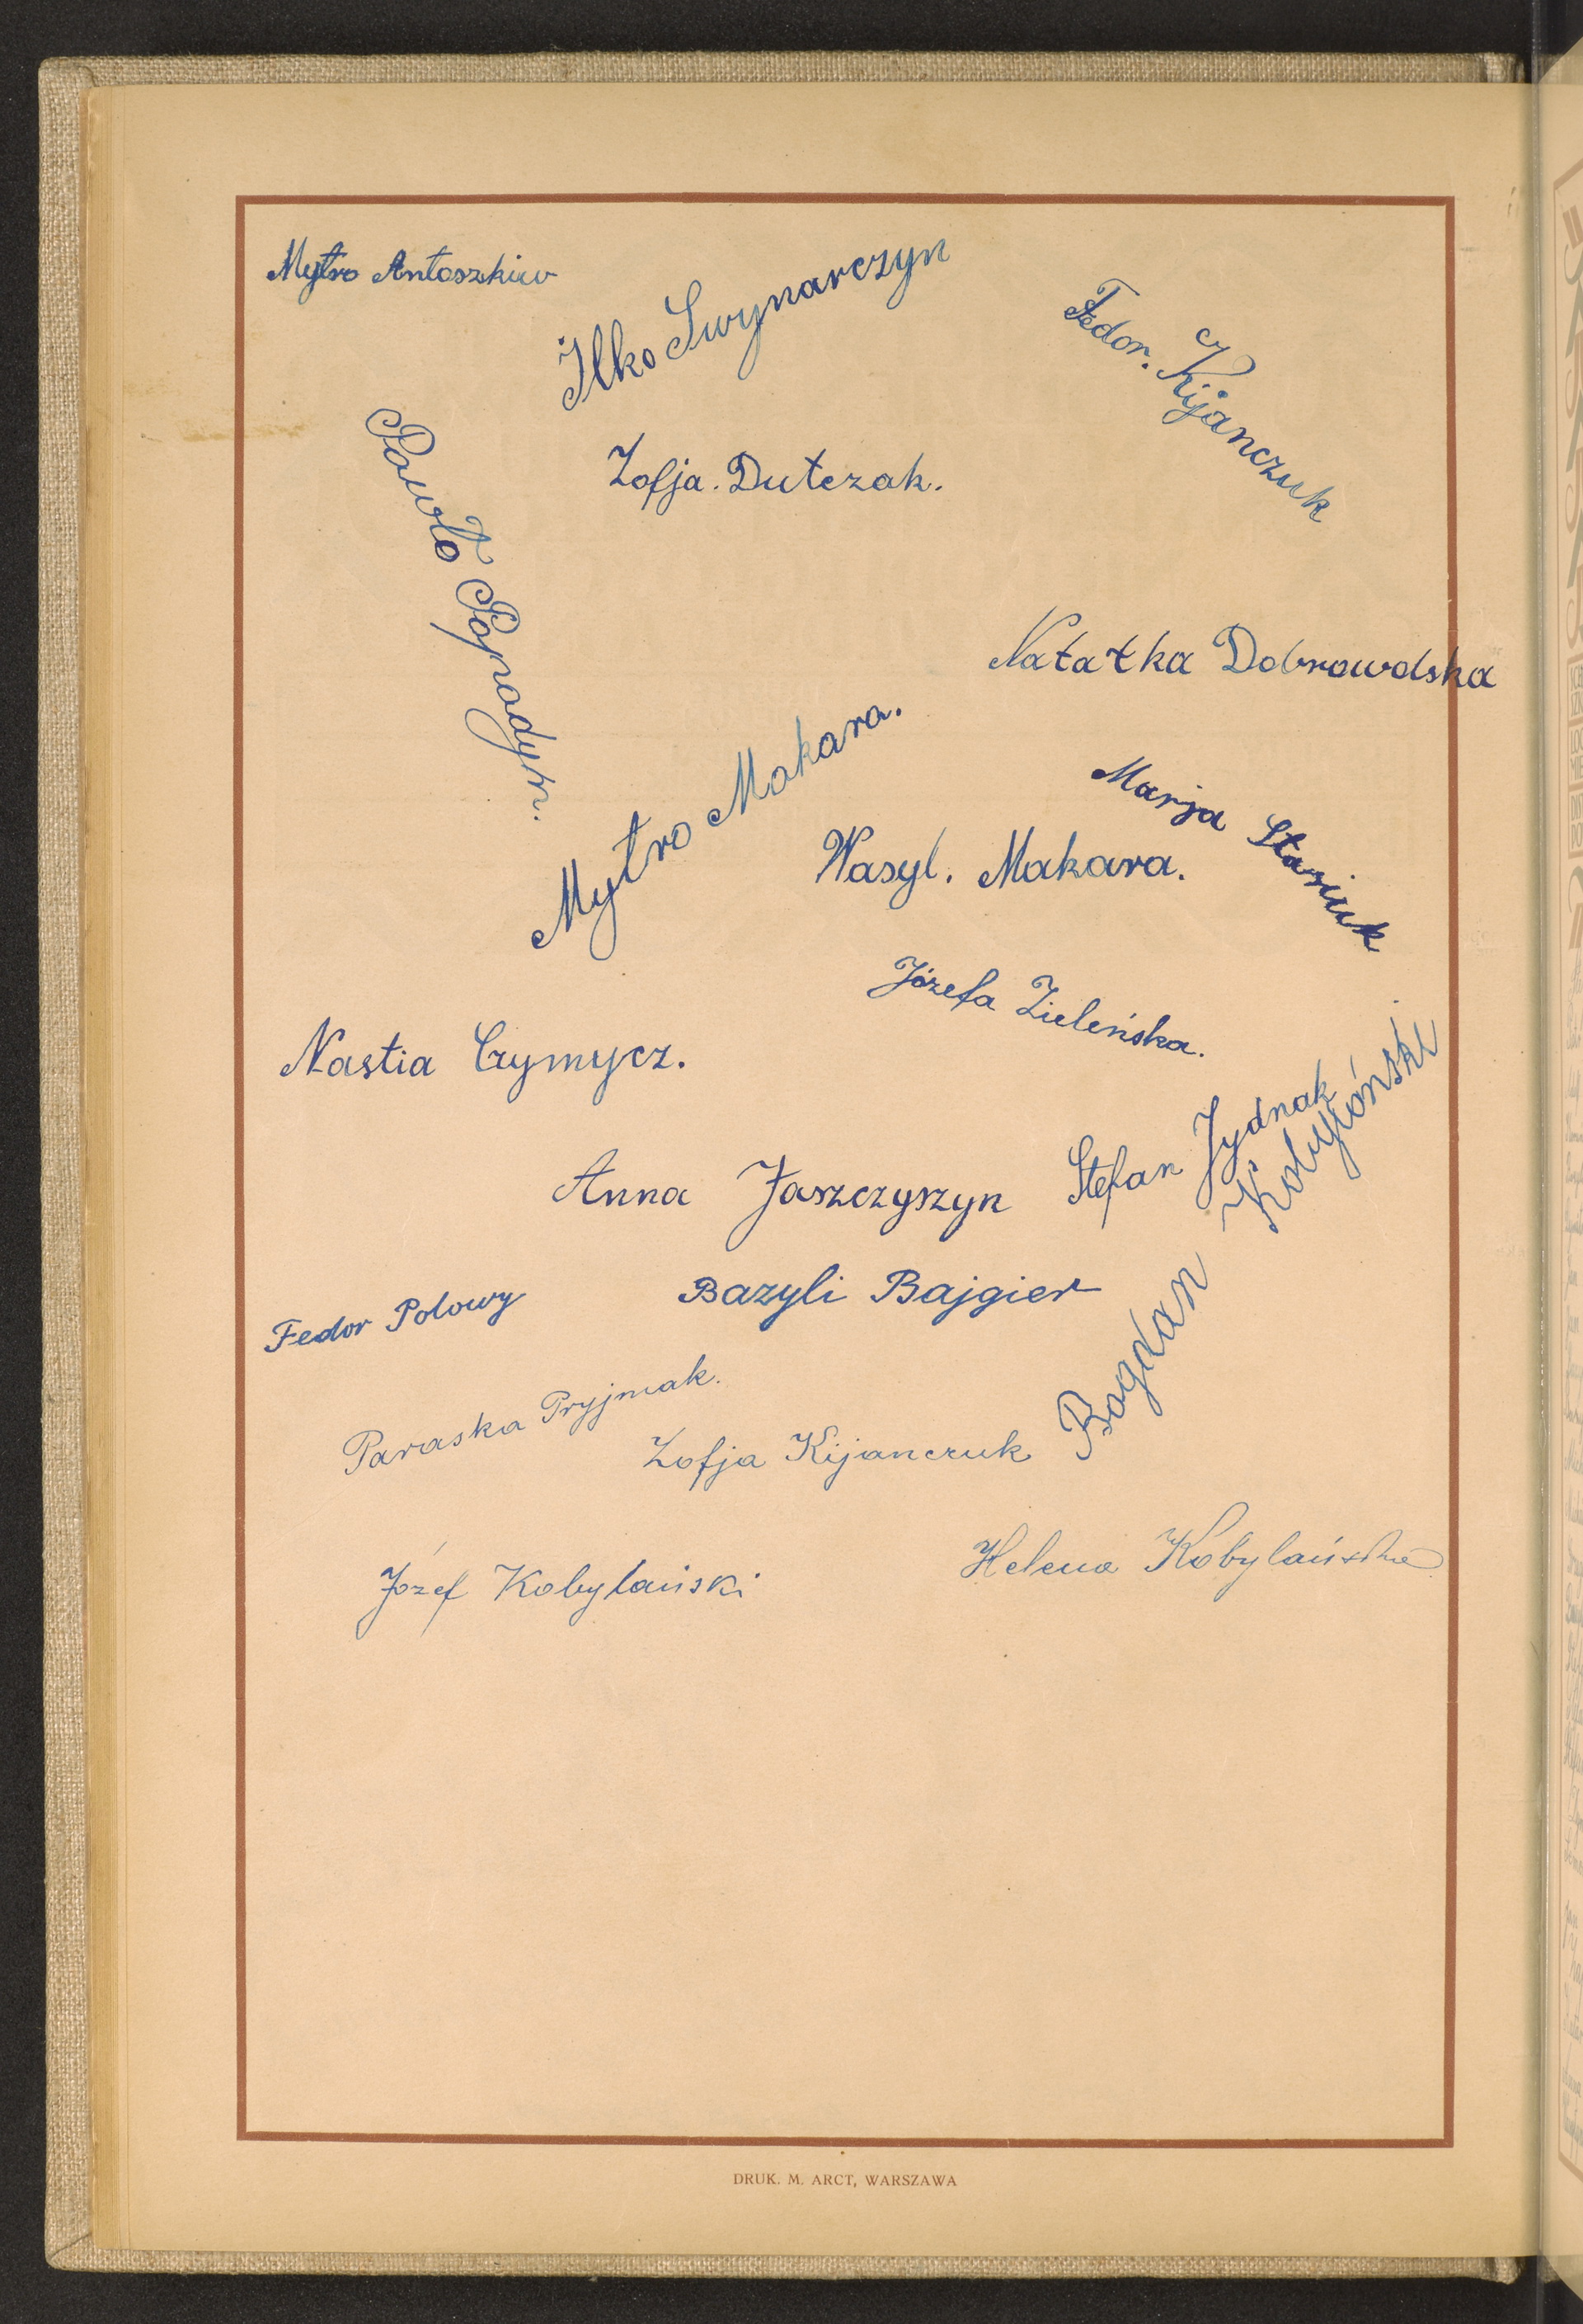 Mytro Antoszkiw
Ilko Swynarczyn
Fedor. Kijanczuk
Pawło Popadyn.
Zofja. Dutczak.
Natałka Dobrowolska
Mytro Makara.
Marja Stasiuk
Wasyl. Makara.
Józefa Zieleńska.
Nastia Czymycz.
Stefan Jydnak
Anna Jaszczyszyn
Bogdan Kobylański
Bazyli Bajgier
Fedor Polowy
Paraska Pryjmak.
Zofja Kijanczuk
Józef Kobylański
Helena Kobylańska
DRUK. M. ARCT, WARSZAWA